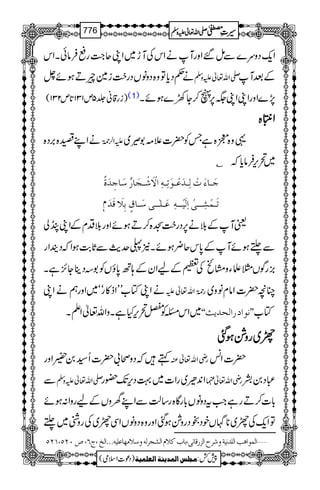 سیرتِ مصطفیٰ صلی اللہ تعالیٰ علیہ وسلم
776
ایک دوسرے سے مل گئے اور آپ نے اس کی آڑ میں اپنی حاجت رفع فرمائی۔ اس
کے بعد آپ صلی اللہ تعالیٰ علیہ وسلم نے حکم دیا تو وہ دونوں درخت زمین چیرتے ہوئے چل
پڑے اور اپنی اپنی جگہ پر پہنچ کر جا کھڑے ہوئے۔ (1) (زرقانی جلد۵ ص۱۳۱ تا ص۱۳۲)
انتباہ
یہی وہ معجزہ ہے جس کو حضرت علامہ بوصیری علیہ الرحمۃ نے اپنے قصیدہ بردہ
میں تحریر فرمایا کہ ؎
جَاءَتْ لِدَعْوَتِهِ الْاَشْجَارُ سَاجِدَةً
تَمْشِیْ اِلَیْهِ عَلٰی سَاقٍ بِلَا قَدَمٖ
یعنی آپ کے بلانے پر درخت سجدہ کرتے ہوئے اور بلا قدم کے اپنی پنڈلی
سے چلتے ہوئے آپ کے پاس حاضر ہوئے۔ نیز پہلی حدیث سے ثابت ہوا کہ دیندار
بزرگوں مثلاً علماء و مشائخ کی تعظیم کے لیے ان کے ہاتھ پاؤں کو بوسہ دینا جائز ہے۔
چنانچہ حضرت امام نووی رحمۃ اللہ تعالیٰ علیہ نے اپنی کتاب ’’اذکار‘‘ میں اور ہم نے اپنی
کتاب ’’نوادرالحدیث‘‘ میں اس مسئلہ کو مفصل تحریر کیا ہے۔ واللہ تعالیٰ اعلم۔
چھڑی روشن ہوگئی
حضرت انس رضی اللہ تعالیٰ عنہ کہتے ہیں کہ دو صحابی حضرت اُسید بن حضیر اور
عباد بن بشر رضی اللہ تعالیٰ عنہما اندھیری رات میں بہت دیر تک حضور صلی اللہ تعالیٰ علیہ وسلم سے
بات کرتے رہے جب یہ دونوں بارگاہ رسالت سے اپنے گھروں کے لیے روانہ ہوئے
تو ایک کی چھڑی ناگہاں خود بخود روشن ہوگئی اور وہ دونوں اسی چھڑی کی روشنی میں چلتے
......المواهب اللدنية و شرح الزرقاني، باب كلام الشجر له وسلامها عليه...الخ، ج٦، ص ٥٢٠، ٥٢١
پیش کش: مجلس المدینة العلمیة (دعوتِ اسلامی)